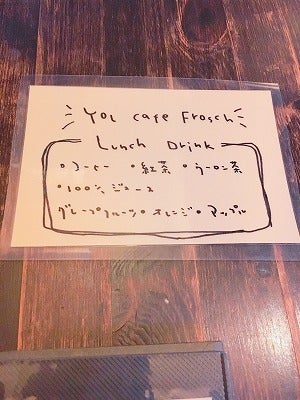 You cafe Frosch
Lunch Drink
・コーヒー ・紅茶 ・ウーロン茶
・100% ジュース
グレープフルーツ・オレンジ・アップル